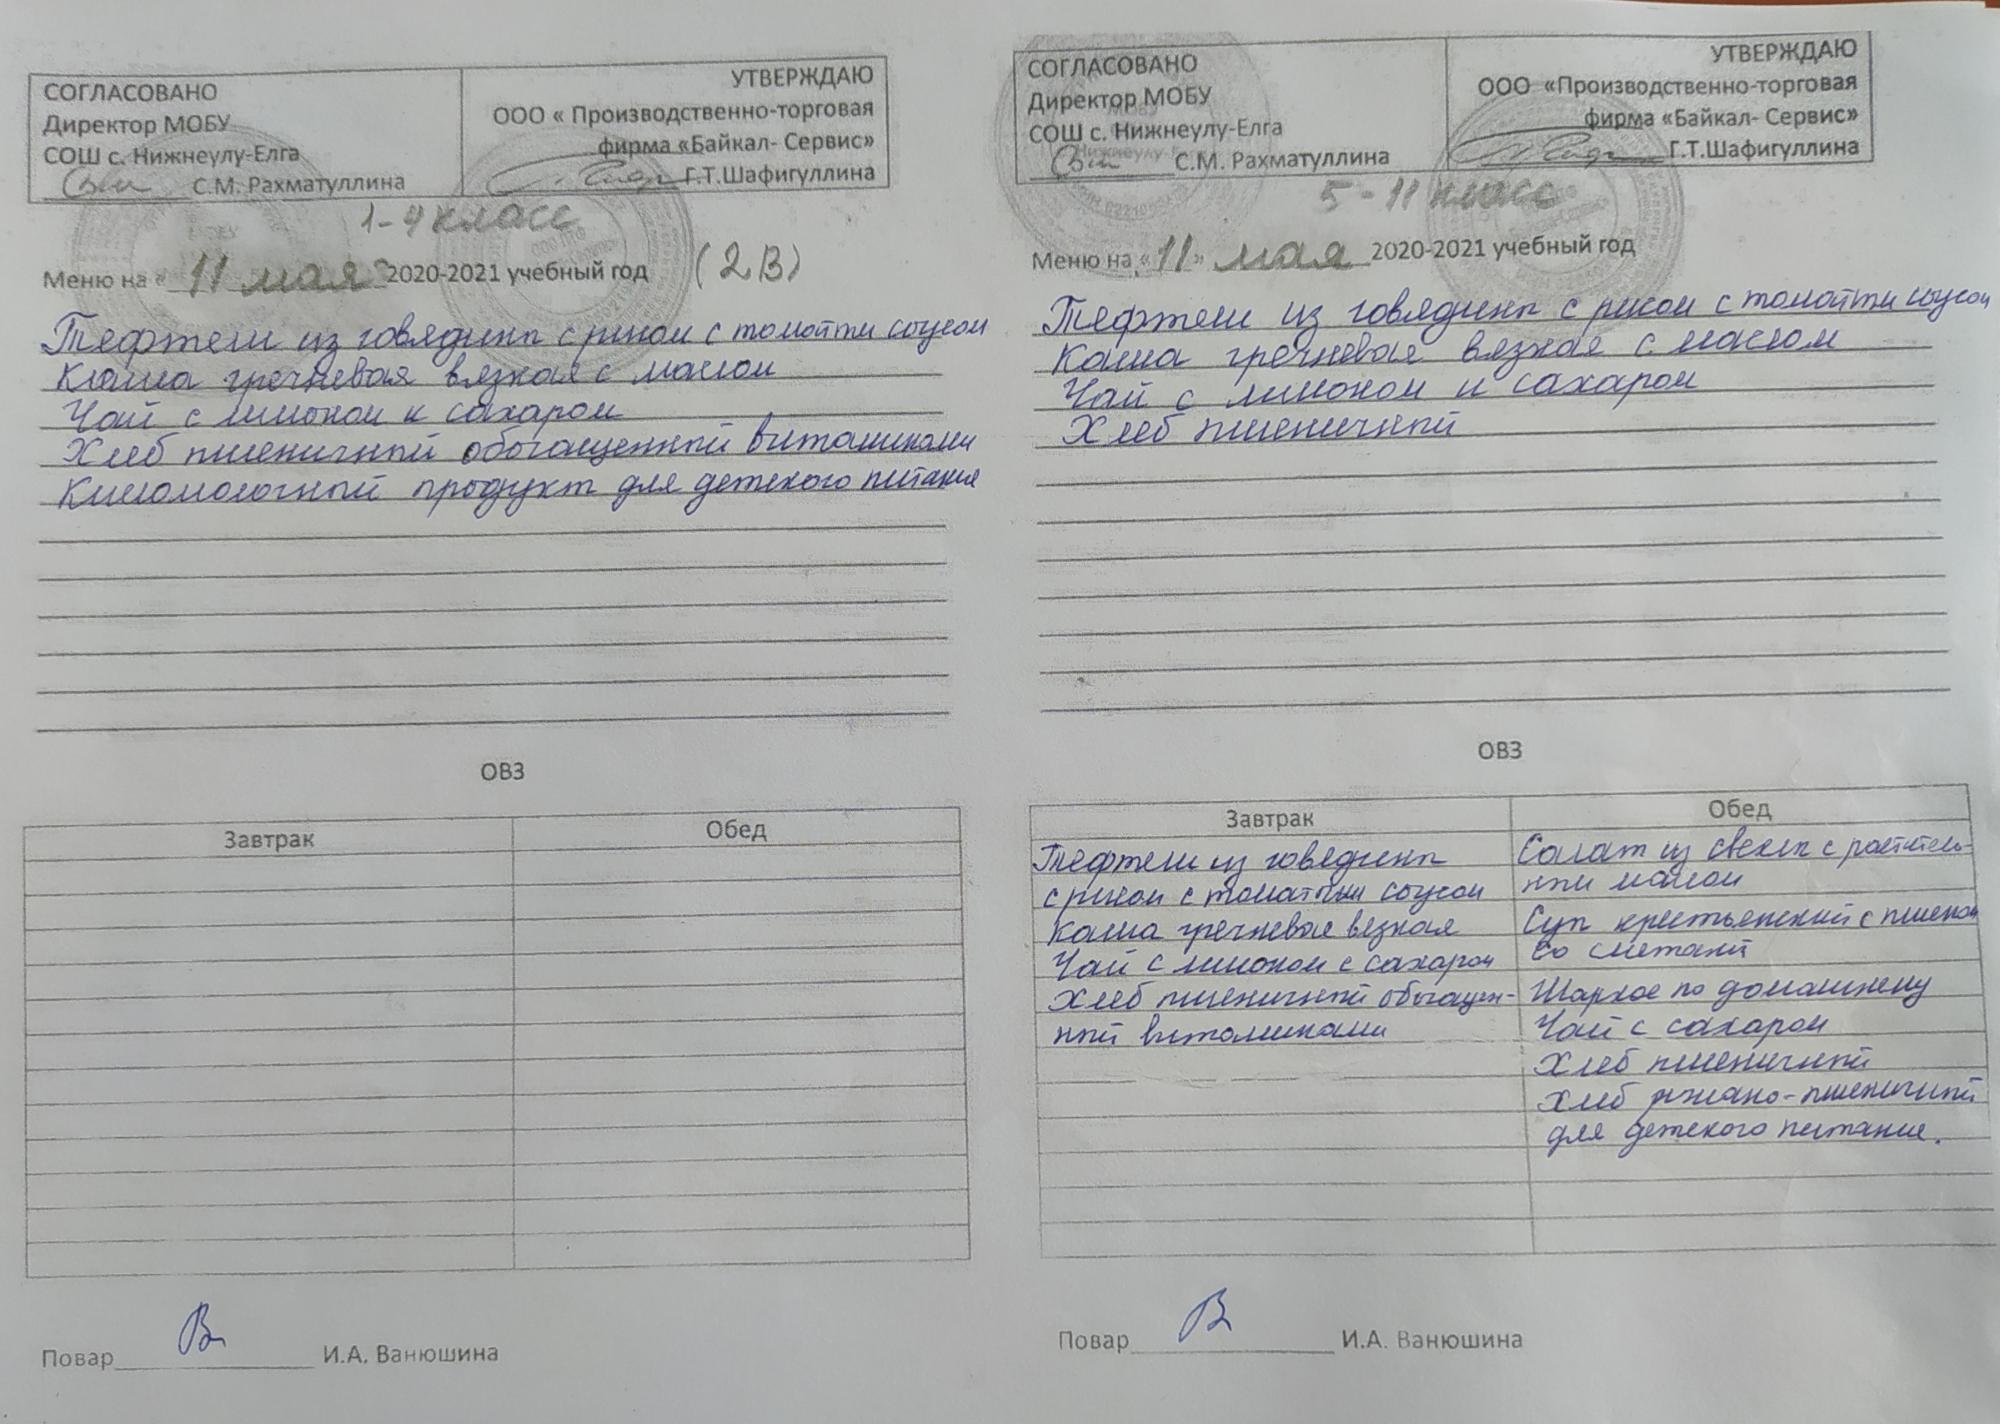 СОГЛАСОВАНО
Директор МОБУ
СОШ с. Нижнеулу-Елга
С.М. Рахматуллина
УТВЕРЖДАЮ
ООО « Производственно-торговая
фирма «Байкал- Сервис»
Г.Т.Шафигуллина
1-4 класс
Меню на « 11 мая » 2020-2021 учебный год (2В)
Тефтели из говядины с рисом с томатн соусом
Каша гречневая вязкая с маслом
Чай с лимоном и сахаром
Хлеб пшеничный обогащенный витаминами
Кисломолочный продукт для детского питания
ОВЗ
Завтрак Обед
Повар И.А. Ванюшина
СОГЛАСОВАНО
Директор МОБУ
СОШ с. Нижнеулу-Елга
С.М. Рахматуллина
УТВЕРЖДАЮ
ООО «Производственно-торговая
фирма «Байкал- Сервис»
Г.Т.Шафигуллина
5-11 класс
Меню на «11» мая 2020-2021 учебный год
Тефтели из говядины с рисом с томатн соусом
Каша гречневая вязкая с маслом
Чай с лимоном и сахаром
Хлеб пшеничный
ОВЗ
Завтрак
Тефтели из говядины
с рисом с томатным соусом
Каша гречневая вязкая
Чай с лимоном с сахаром
Хлеб пшеничный обогащен-
ный витаминами
Обед
Салат из свеклы с раститель-
ным маслом
Суп крестьянский с пшеном
со сметаной
Жаркое по домашнему
Чай с сахаром
Хлеб пшеничный
Хлеб ржано-пшеничный
для детского питания.
Повар И.А. Ванюшина